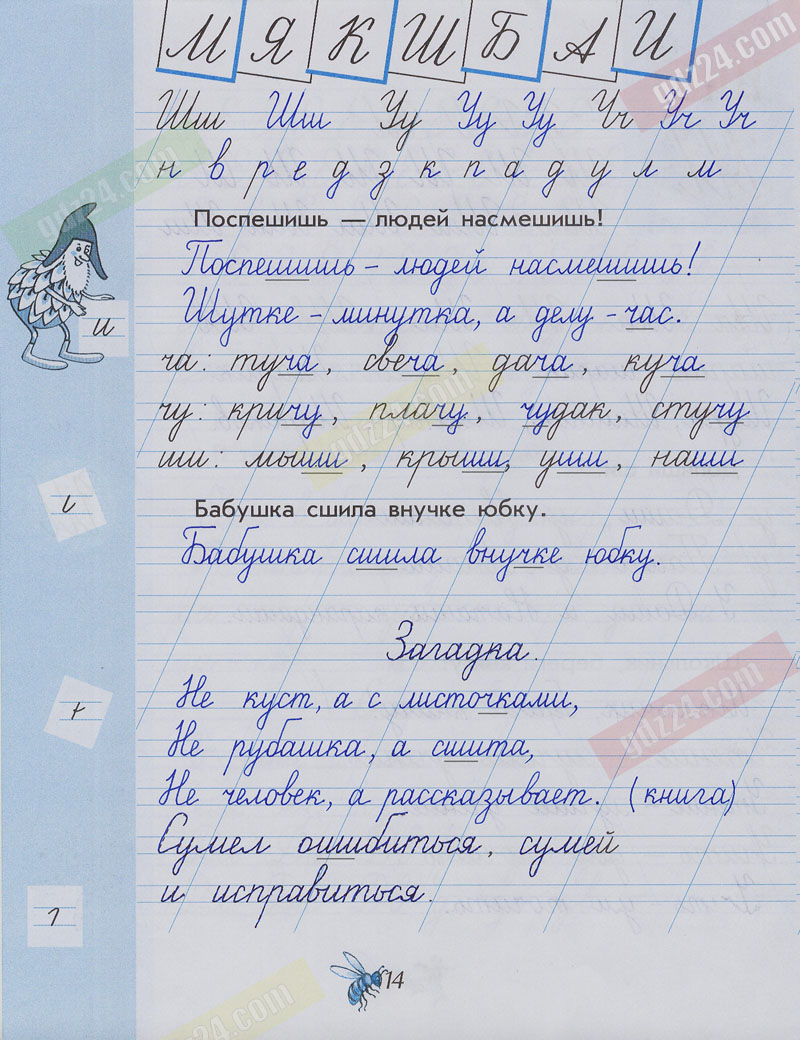 М Я К Ш Б А И
Шш Шш Уу Уу Уу Чч Чч Чч
н в р е д з к п а д у л м
Поспешишь — людей насмешишь!
Поспешишь – людей насмешишь!
и
Шутке – минутка, а делу – час.
ча: туча, свеча, дача, куча
чу: кричу, плачу, чудак, стучу
ши: мыши, крыши, уши, наши
Бабушка сшила внучке юбку.
Бабушка сшила внучке юбку.
Загадка.
Не куст, а с листочками,
Не рубашка, а сшита,
Не человек, а рассказывает. (книга)
Сумел ошибиться, сумей
и исправиться.
14
gdz24.com
gdz24.com
gdz24.com
gdz24.com
gdz24.com